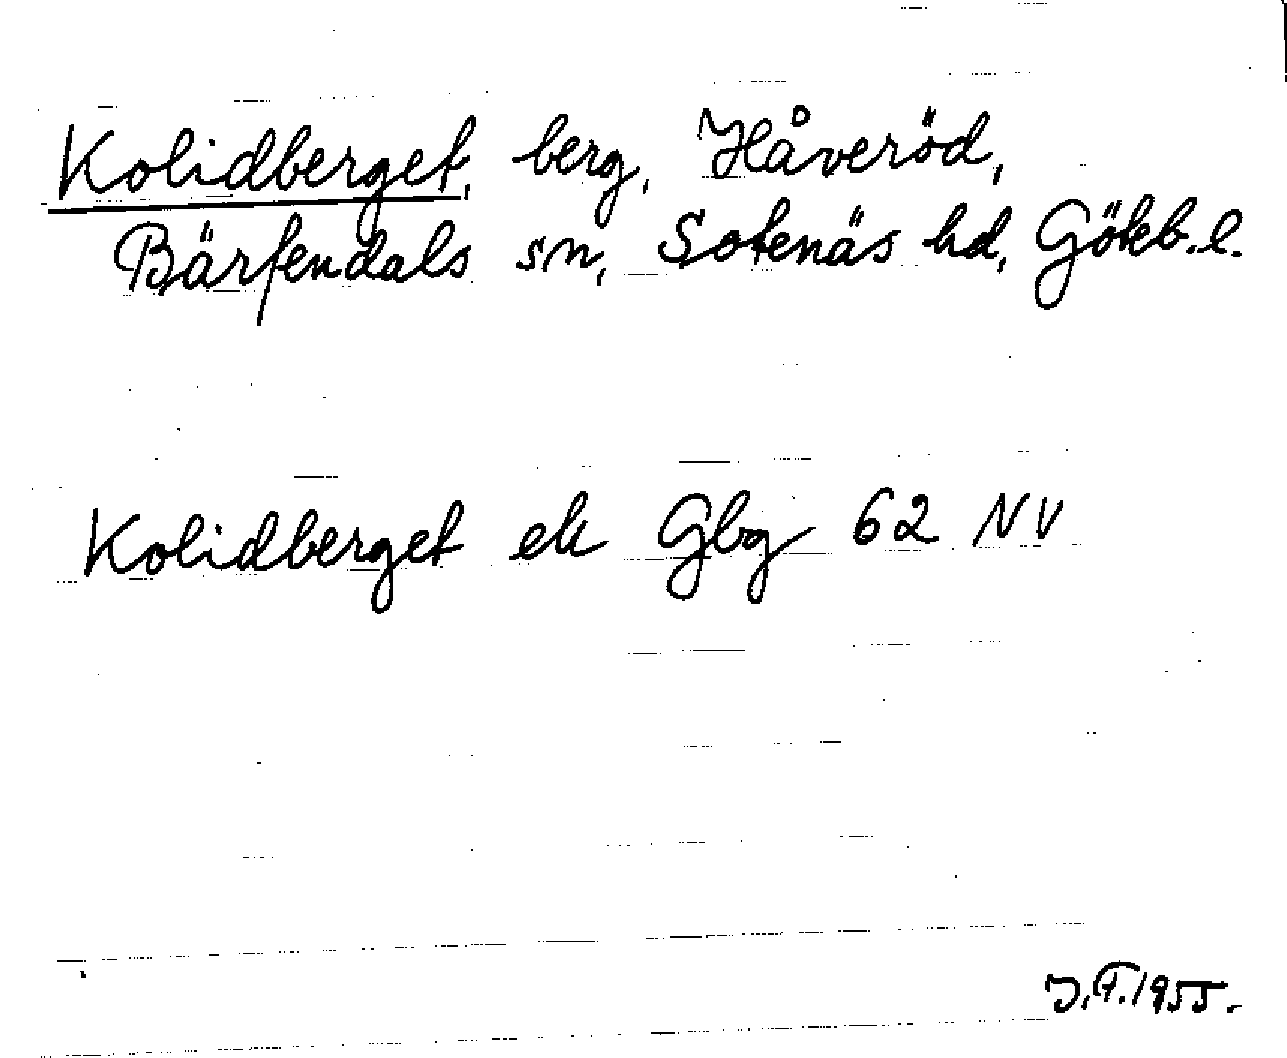 Kolidberget, berg, Håveröd,
Bärfendals sn, Sotenäs hd, Gökb. l.
Kolidberget ek Gbg 62 NV
1955.